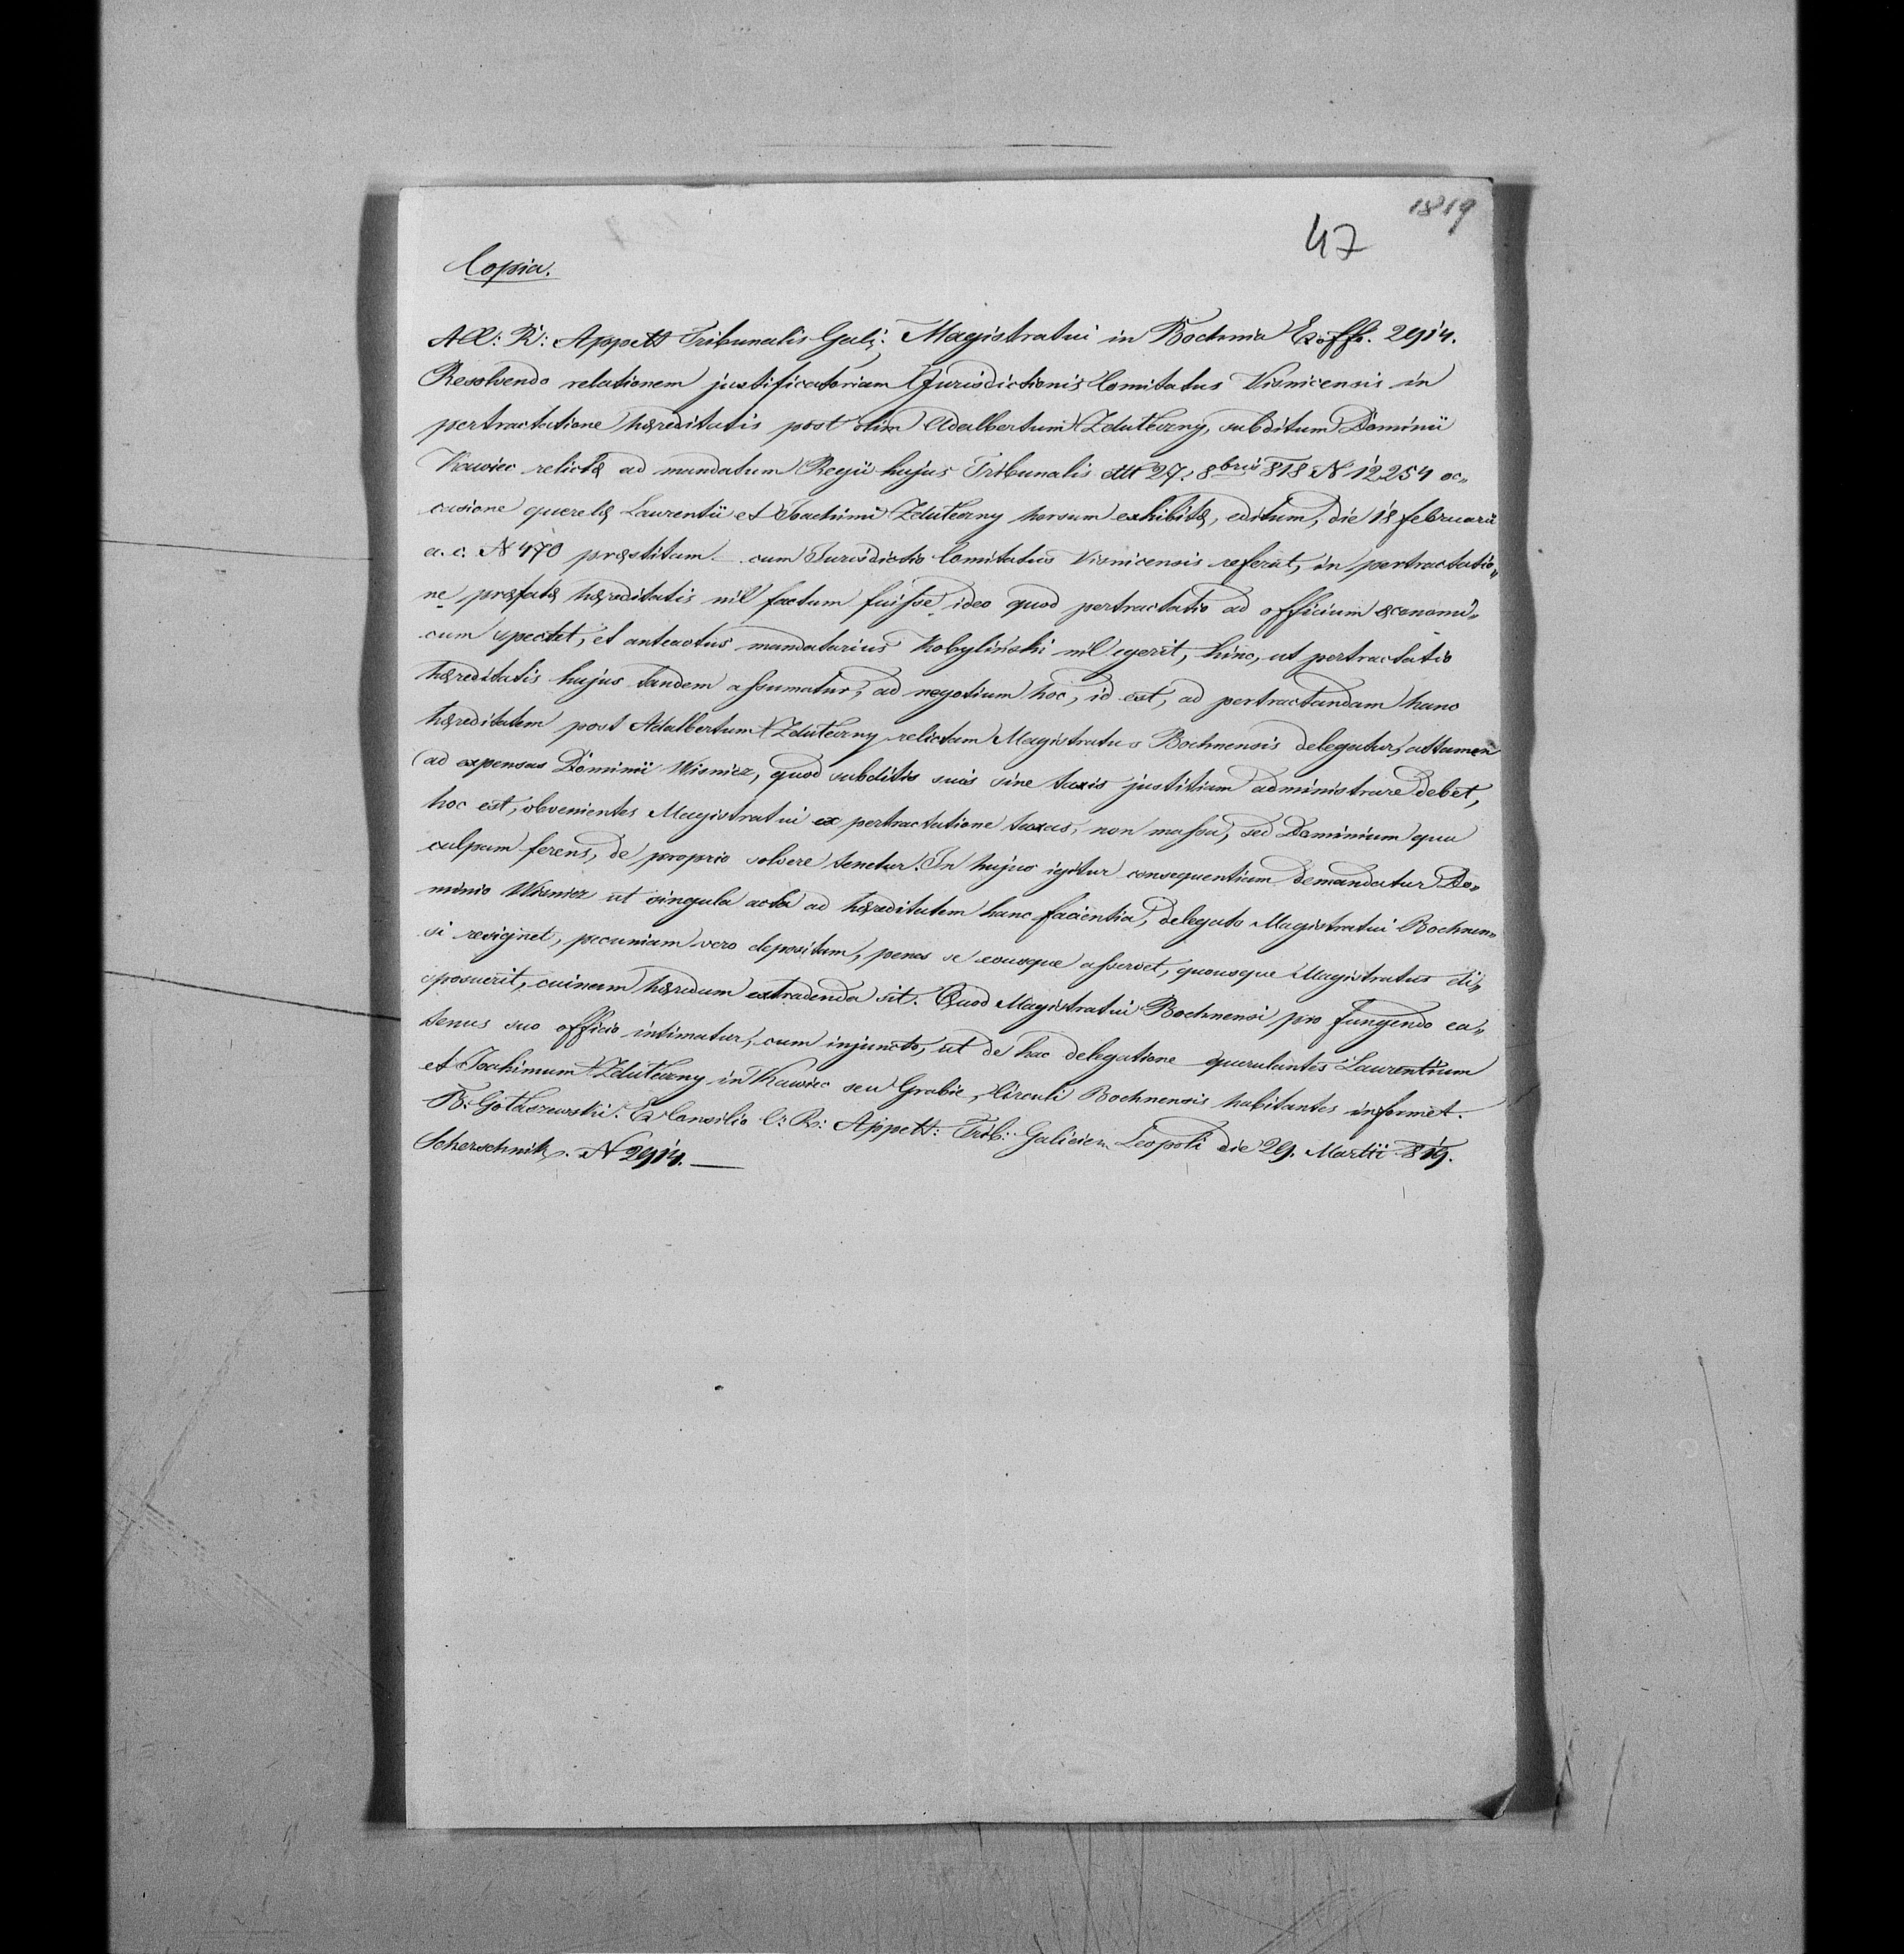 1819
47
Copia.
A C: R: Appell Tribunalis Galiz: Magistratui in Bochnia Ex offo. 2914.
Resolvendo relationem justificatoriam Jurisdictionis Comitatus Visnicensis in
pertractatione hæreditatis post olim Adalbertum Zduleczny, subditum Dominii
Kawiec relictæ ad mandatum Regii hujus Tribunalis ddt 27. 8bris 818 N 12254 oc„
casione querelæ Laurentii et Joachimi Zduleczny horsum exhibitæ, editum, die 18 februarii
a. c. N 470 præstitam cum Jurisdictio Comitatus Visnicensis referat, in pertractatio„
ne præfatæ hæreditatis nil factum fuisse ideo quod pertractatio ad officium œconomi„
cum spectet, et anteactus mandatarius Kobyliński nil egerit, hinc, ut pertractatio
hæreditatis hujus tandem assumatur, ad negotium hoc, id est, ad pertractandam hanc
hæreditatem post Adalbertum Zduleczny relictam Magistratus Bochnensis delegatur, attamen
ad expensas Dominii Wisnicz, quod subditis suis sine taxis justitiam administrare debet,
hoc est, obvenientes Magistratui ex pertractatione taxas, non massa, sed Dominium qua
culpam ferens, de proprio solvere tenetur. In hujus igitur consequentiam demandatur Do„
minio Wisnicz ut singula acta ad hæreditatem hanc facientia, delegato Magistratui Bochnen„
si resignet, pecuniam vero depositam, penes se eousque asservet, quousque Magistratus di„
sposuerit, cuinam hæredum extradenda sit. Quod Magistratui Bochnensi pro fungendo ea„
tenus suo officio intimatur, cum injuncto, ut de hac delegatione querulantes Laurentium
et Joachimum Zduleczny in Kawiec seu Grabie, Circuli Bochnensis habitantes informet.
B: Gołaszewski. Ex Consilio C: R: Appell: Trib: Galicien Leopoli die 29. Martii 819.
Scherschnik. N 2914.